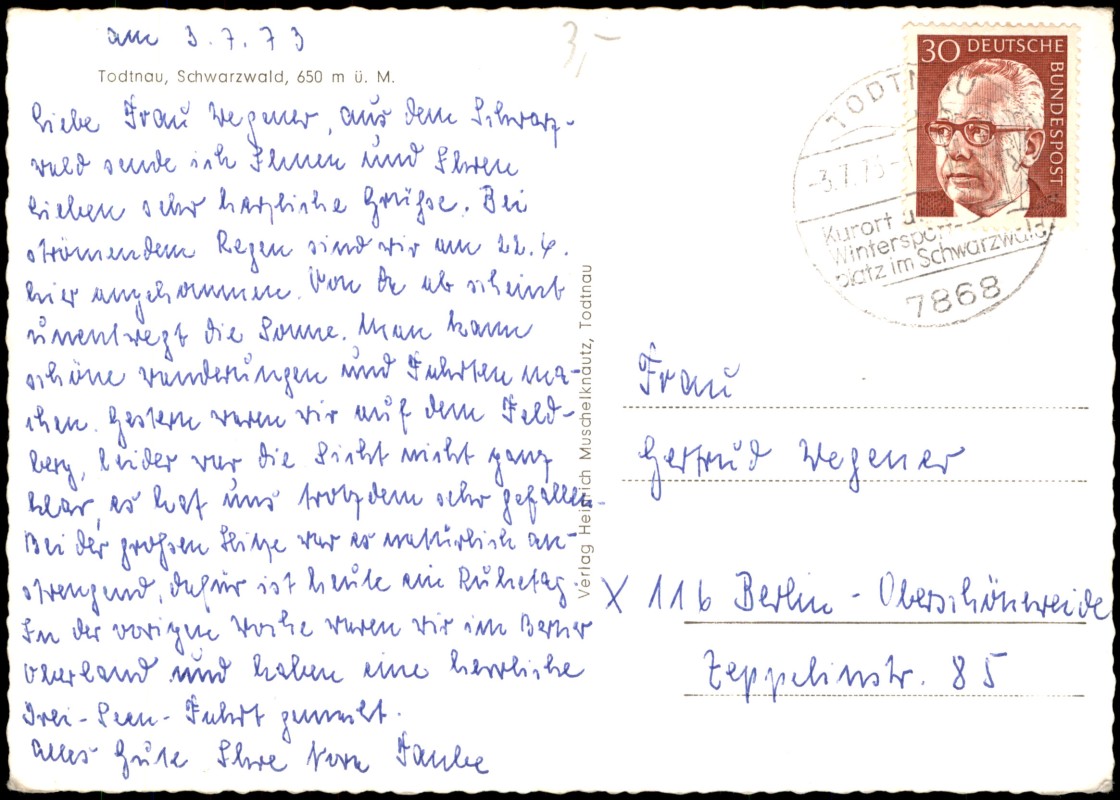 am 3.7.73
Todtnau, Schwarzwald, 650 m ü. M.
Liebe Frau Wegener, aus dem Schwarz-
wald sende ich Ihnen und Ihren
Lieben sehr herzliche Grüße. Bei
strömendem Regen sind wir am 22.6.
hier angekommen. Von da ab scheint
unentwegt die Sonne. Man kann
schöne Wanderungen und Fahrten ma-
chen. Gestern waren wir auf dem Feld-
berg, leider war die Sicht nicht ganz
klar, es hat uns trotzdem sehr gefallen.
Bei der großen Hitze war es natürlich an-
strengend, dafür ist heute ein Ruhetag.
In der vorigen Woche waren wir im Berner
Oberland und haben eine herrliche
Drei-Seen-Fahrt gemacht.
Alles Gute Ihre Nora Taube
Verlag Heinrich Muschelknautz, Todtnau
3,-
30 DEUTSCHE
BUNDESPOST
TODTNAU
-3.7.73-1
Kurort u.
Wintersport-
platz im Schwarzwald
7868
Frau
Gertrud Wegener
X 116 Berlin - Oberschöneweide
Zeppelinstr. 85